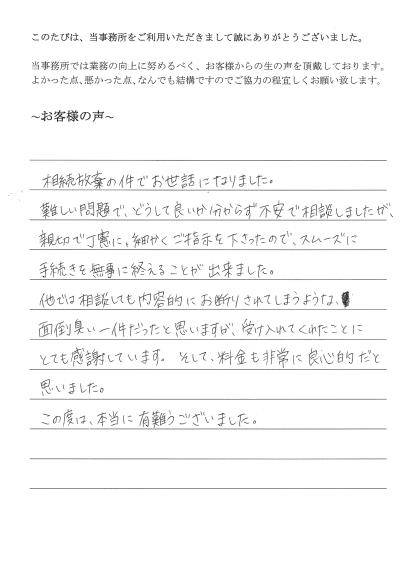 このたびは、当事務所をご利用いただきまして誠にありがとうございました。
当事務所では業務の向上に努めるべく、お客様からの生の声を頂戴しております。
よかった点、悪かった点、なんでも結構ですのでご協力の程宜しくお願い致します。
~お客様の声~
相続放棄の件でお世話になりました。
難しい問題で、どうして良いか分からず不安で相談しましたが、
親切で丁寧に。細かくご指示を下さったので、スムーズに
手続きを無事に終えることが出来ました。
他では相談しても内容的にお断りされてしまうような、
面倒臭い一件だったと思いますが、受け入れてくれたことに
とても感謝しています。そして、料金も非常に良心的だと
思いました。
この度は、本当に有難うございました。